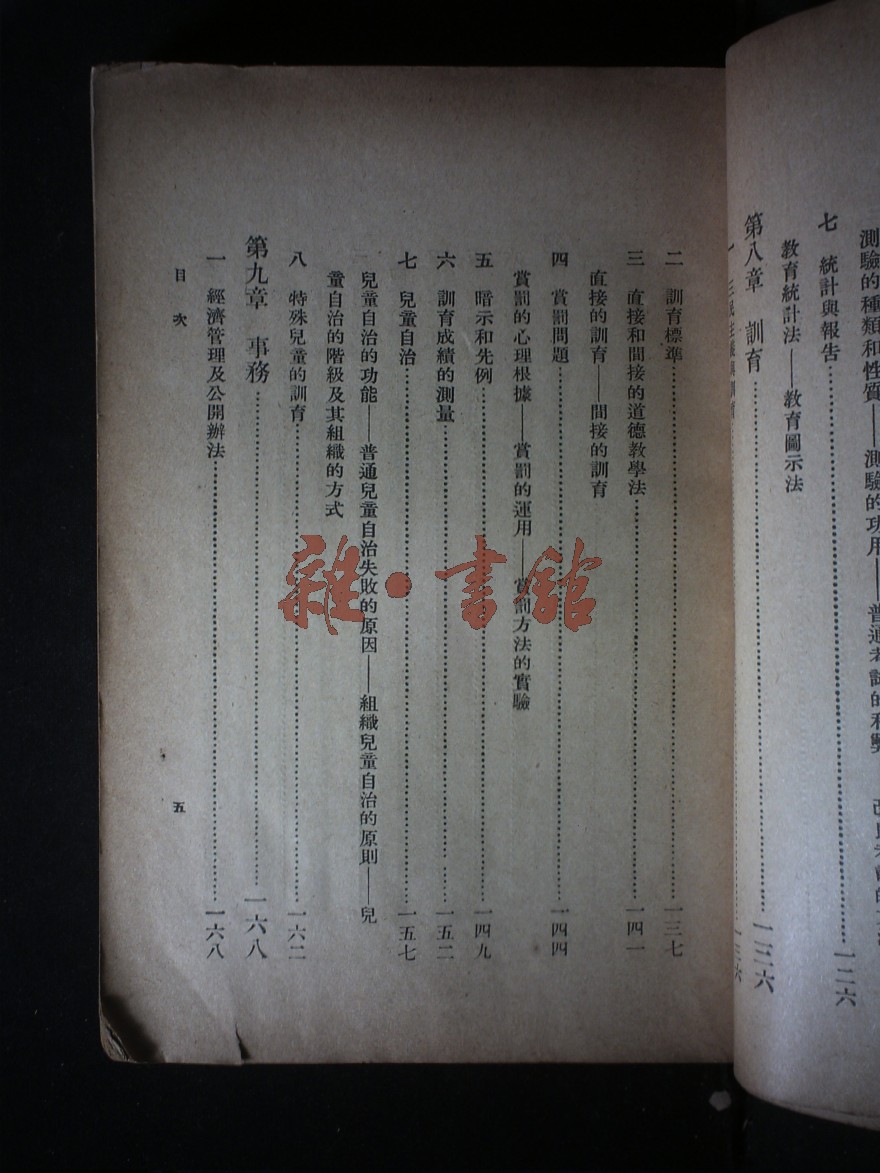 測驗的種類和性質——測驗的功用——普通考試的利弊
七　統計與報告……一二六
教育統計法——教育圖示法
第八章　訓育……一三六
一三六
二　訓育標準……一三七
三　直接和間接的道德教學法……一四一
直接的訓育——間接的訓育
四　賞罰問題……一四四
賞罰的心理根據——賞罰的運用——賞罰方法的實驗
五　暗示和先例……一四九
六　訓育成績的測量……一五二
七　兒童自治……一五七
兒童自治的功能——普通兒童自治失敗的原因——組織兒童自治的原則——兒
童自治的階級及其組織的方式
八　特殊兒童的訓育……一六二
第九章　事務……一六八
一　經濟管理及公開辦法……一六八
目次　五
雜·書館